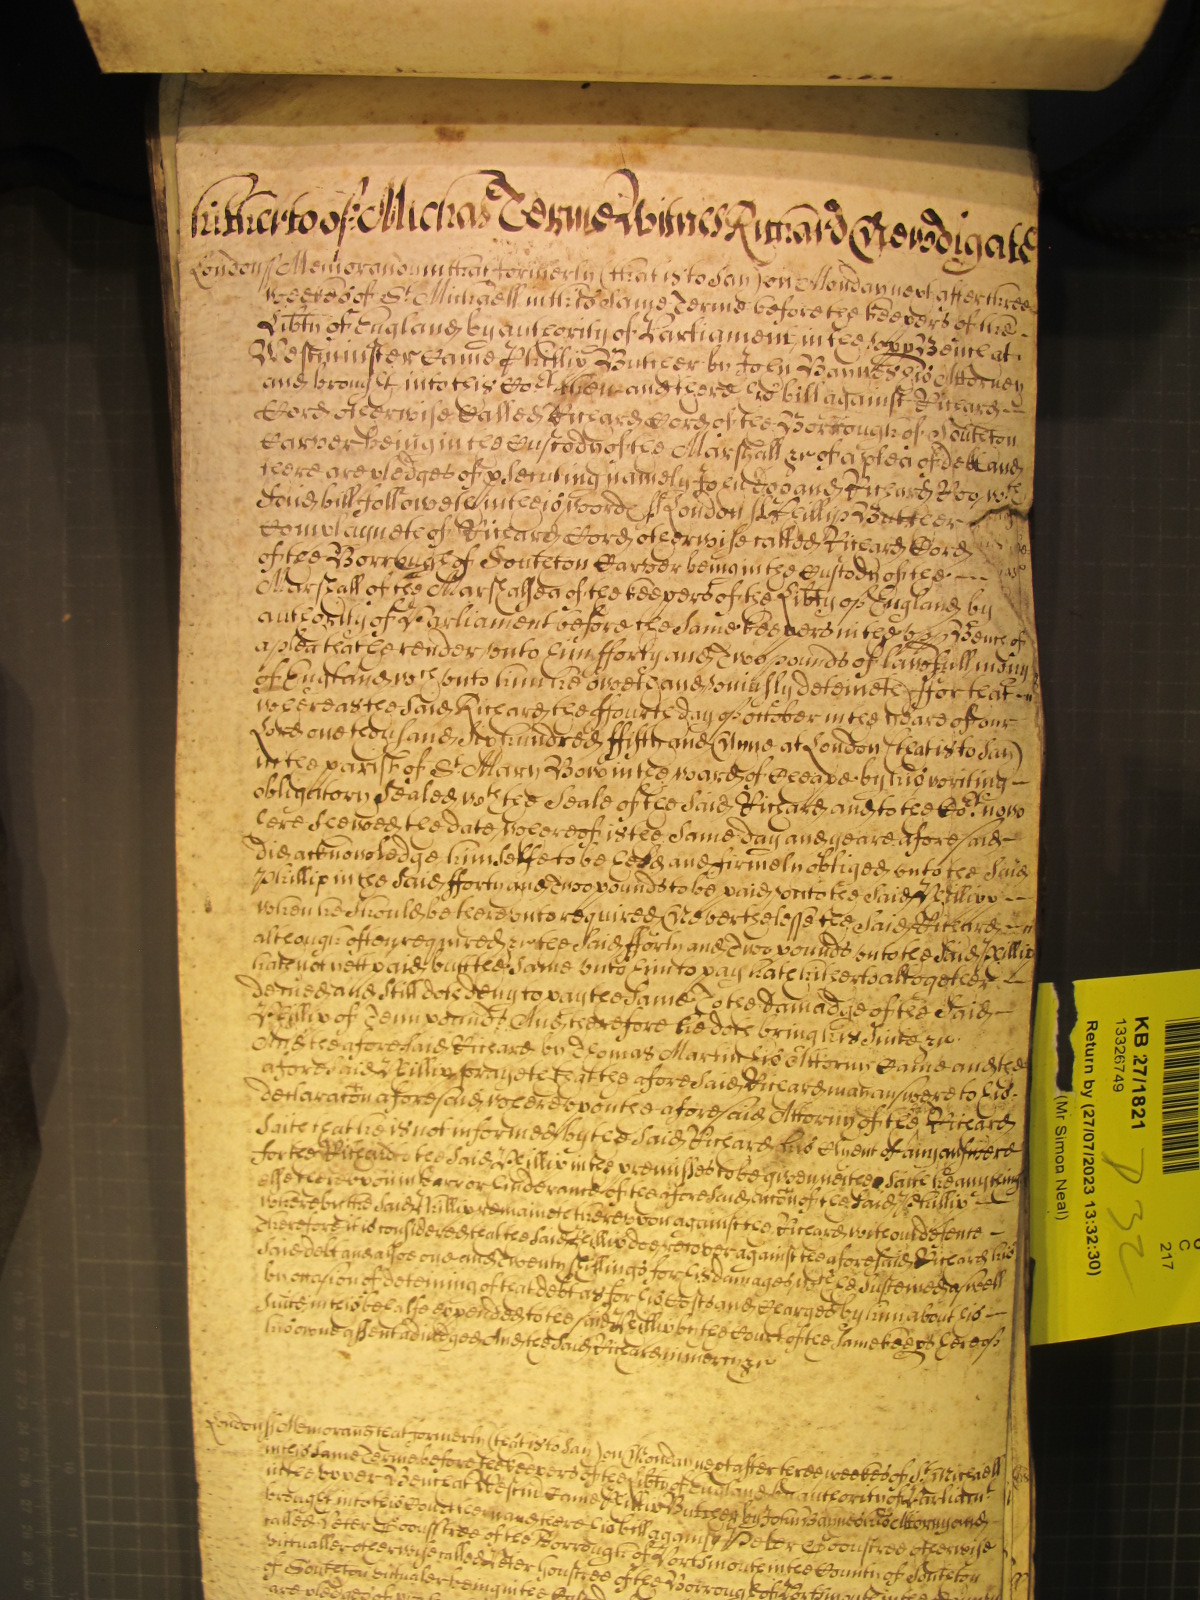 hitherto of Michas Terme Witnes Richard Newdigate
London ss Memorandum that formerly (that is to say) on Monday next after three
weekes of St Michaell in this same Terme before the keepers of the
Libty of England by authority of Parliament in the upp Bench at
Westminster Came Phillip Buttler by John Barnes his Attorney
and brought into this Cort then and there his bill against Richard
Cord otherwise Called Richard Cord of the Borrough of Southton
Carver being in the Custody of the Marshall &c of a plea of debt and
there are pledges of psecuting namely John Doo and Richard Roo wch
said bill followeth in theis words ss London ss Phillipp Buttler
Complayneth of Richard Cord otherwise called Richard Cord
of the Borrough of Southton Carver being in the Custody of the
Marshall of the Marshalsea of the keepers of the Libty of England by
authority of Parliament before the same keepers in the upp Bench of
a plea that he render unto him fforty and Two pounds of lawfull mony
of England wch unto him he oweth and oniustly deteineth ffor that
whereas the said Richard the ffourth day of october in the yeare of our
Lord one thousand six hundred ffifty and Nyne at London (that is to say)
in the parish of St Mary Bow in the ward of Cheape by his writing
obligatory Sealed wth the Seale of the said Richard and to the Cort now
here shewed the date whereof is the same day and yeare aforesaid
did acknowledge himselfe to be held and firmely obliged unto the said
Phillip in the said fforty and Two pounds to be paid unto the said Phillipp
when he should be thereunto required Neverthelesse the said Richard
although often required &c the said fforty and Two pounds unto the said Phillip
hath not yett paid but the same unto him to pay hath hitherto altogether
denied and still doth deny to pay the same To the damadge of the said
Phillip of Tenn pounds And therefore he doth bring his suite &c
And the aforesaid Richard by Thomas Martin his Attorny Came and the
aforesaid Phillip prayeth that the aforesaid Richard may answere to his
declaracon aforesaid whereupon the aforesaid Attorny of the Richard
saith that he is not informed by the said Richard his Clyent of any answere
for the Richard to the said Phillip in the premisses to be given neither saith he any thing
else thereupon in barr or hinderance of the aforesaid accon of the said Phillip
whereby the said Phillip remaineth thereupon against the Richard without defence
Therefore it is considered that the said Phillip doe recover against the aforesaid Richard his
said debt and alsoe one and twenty shillings for his damages wch he susteined aswell
by occasion of deteining of that debt as for his Costs and Charges by him about his
suite in this behalfe expended to the said Phillip by the Court of the same keeps here of
his owne assent adiudged And the said Richard in mercy &c
London ss Memorand that formerly (that is to say) on Monday next after three weekes of St Michaell
in this same Terme before the keepers of the Libty of England by authority of Parliamt
in the upper Bench at Westm Came Phillip Buttler by John Barnes his Attorny and
brought into this Court then and there his bill against Peter
called Peter of the Borrough of Portsmouth in the County of Southton
victualler otherwise called Peter of the Borrough of Portsmouth in the County
of Southton victualer being in the
are pledges of
KB 27/1821
13326749
Return by (27/07/2023 13:32:30)
(Mr Simon Neal)
C
217